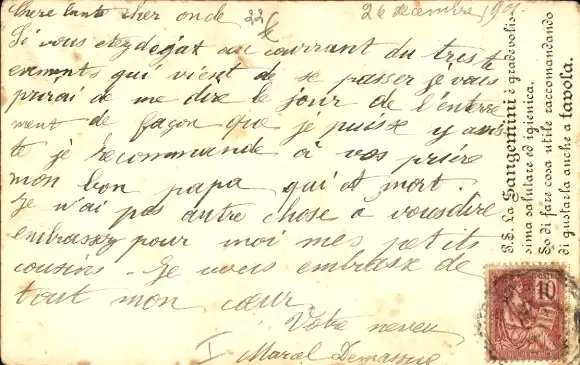 chere tante cher oncle
26 decembre 1901
Si vous etez degat au courrant du triste
evements qui vient de se passer je vous
purai de me dire le jour de l'enterre
ment de façon que je puisse y assis
te je recommande a vos priére
mon bon papa qui et mort.
Je n'ai pas autre chose a vous dire
embrassez pour moi mes petits
cousins. Je vous embrasse de
tout mon cœur
Votre neveu
Marcel
P.S. La Sangemini è gradevolis-
sima salutare ed igienica.
So di fare cosa utile raccomandando
di gustarla anche a tavola.
10